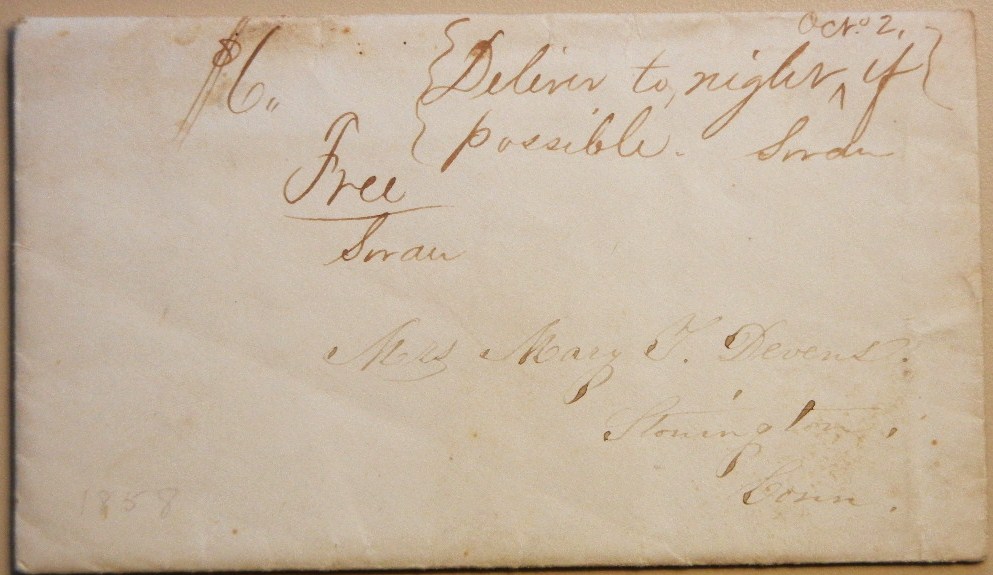 Octo. 2.
$6,,
Deliver to,night, if
possible. Swan
Free
Swan
Mrs Mary F. Devens.
Stonington,
Conn.
1858